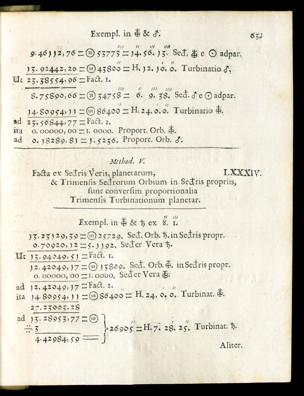 Exempl. in ♁ & ♂. 631
9. 46112, 76 = 53773 = 14. 56. 13. Sect. ♁ e ☉ adpar.
13. 92442, 20 = 43800 = H. 12. 10. 0. Turbinatio ♂.
Ut 23. 38554. 96 = Fact. 1.
8. 75890, 06 = 34758 = 6. 9. 38. Sect. ♂ e ☉ adpar.
14. 80954. 11 = 86400 = H. 24. 0. 0. Turbinatio ♁.
ad 23. 56844. 77 = Fact. 2.
ita 0. 00000, 00 = 1. 0000. Proport. Orb. ♁.
ad 0. 18289. 81 = 1. 5236. Proport. Orb. ♂.
Method. V.
Facta ex Sectris Veris, planetarum, LXXXIV.
& Trimensis Sectrorum Orbium in Sectris propriis,
sunt conversim proportionalia
Trimensis Turbinationum planetar.
Exempl. in ♁ & ♄ ex 8. 1.
13. 23129, 39 = 25729. Sect. Orb. ♄. in Sectris propr.
0. 70920, 12 = 5. 1192. Sect̄er Vera ♄.
Ut 13. 94049. 51 = Fact. 1.
12. 42049, 17 = 13809. Sect. Orb. ♁. in Sectris propr.
0. 00000, 00 = 1. 0000, Sect̄er Vera ♁.
ad 12. 42049. 17 = Fact. 2.
ita 14. 80954. 11 = 86400 = H. 24. 0, 0. Turbinat. ♁.
27. 23003. 28
ad 13. 28953, 77 =
3 26905 = H. 7. 28. 25. Turbinat. ♄.
4. 42984. 59 =
Aliter.